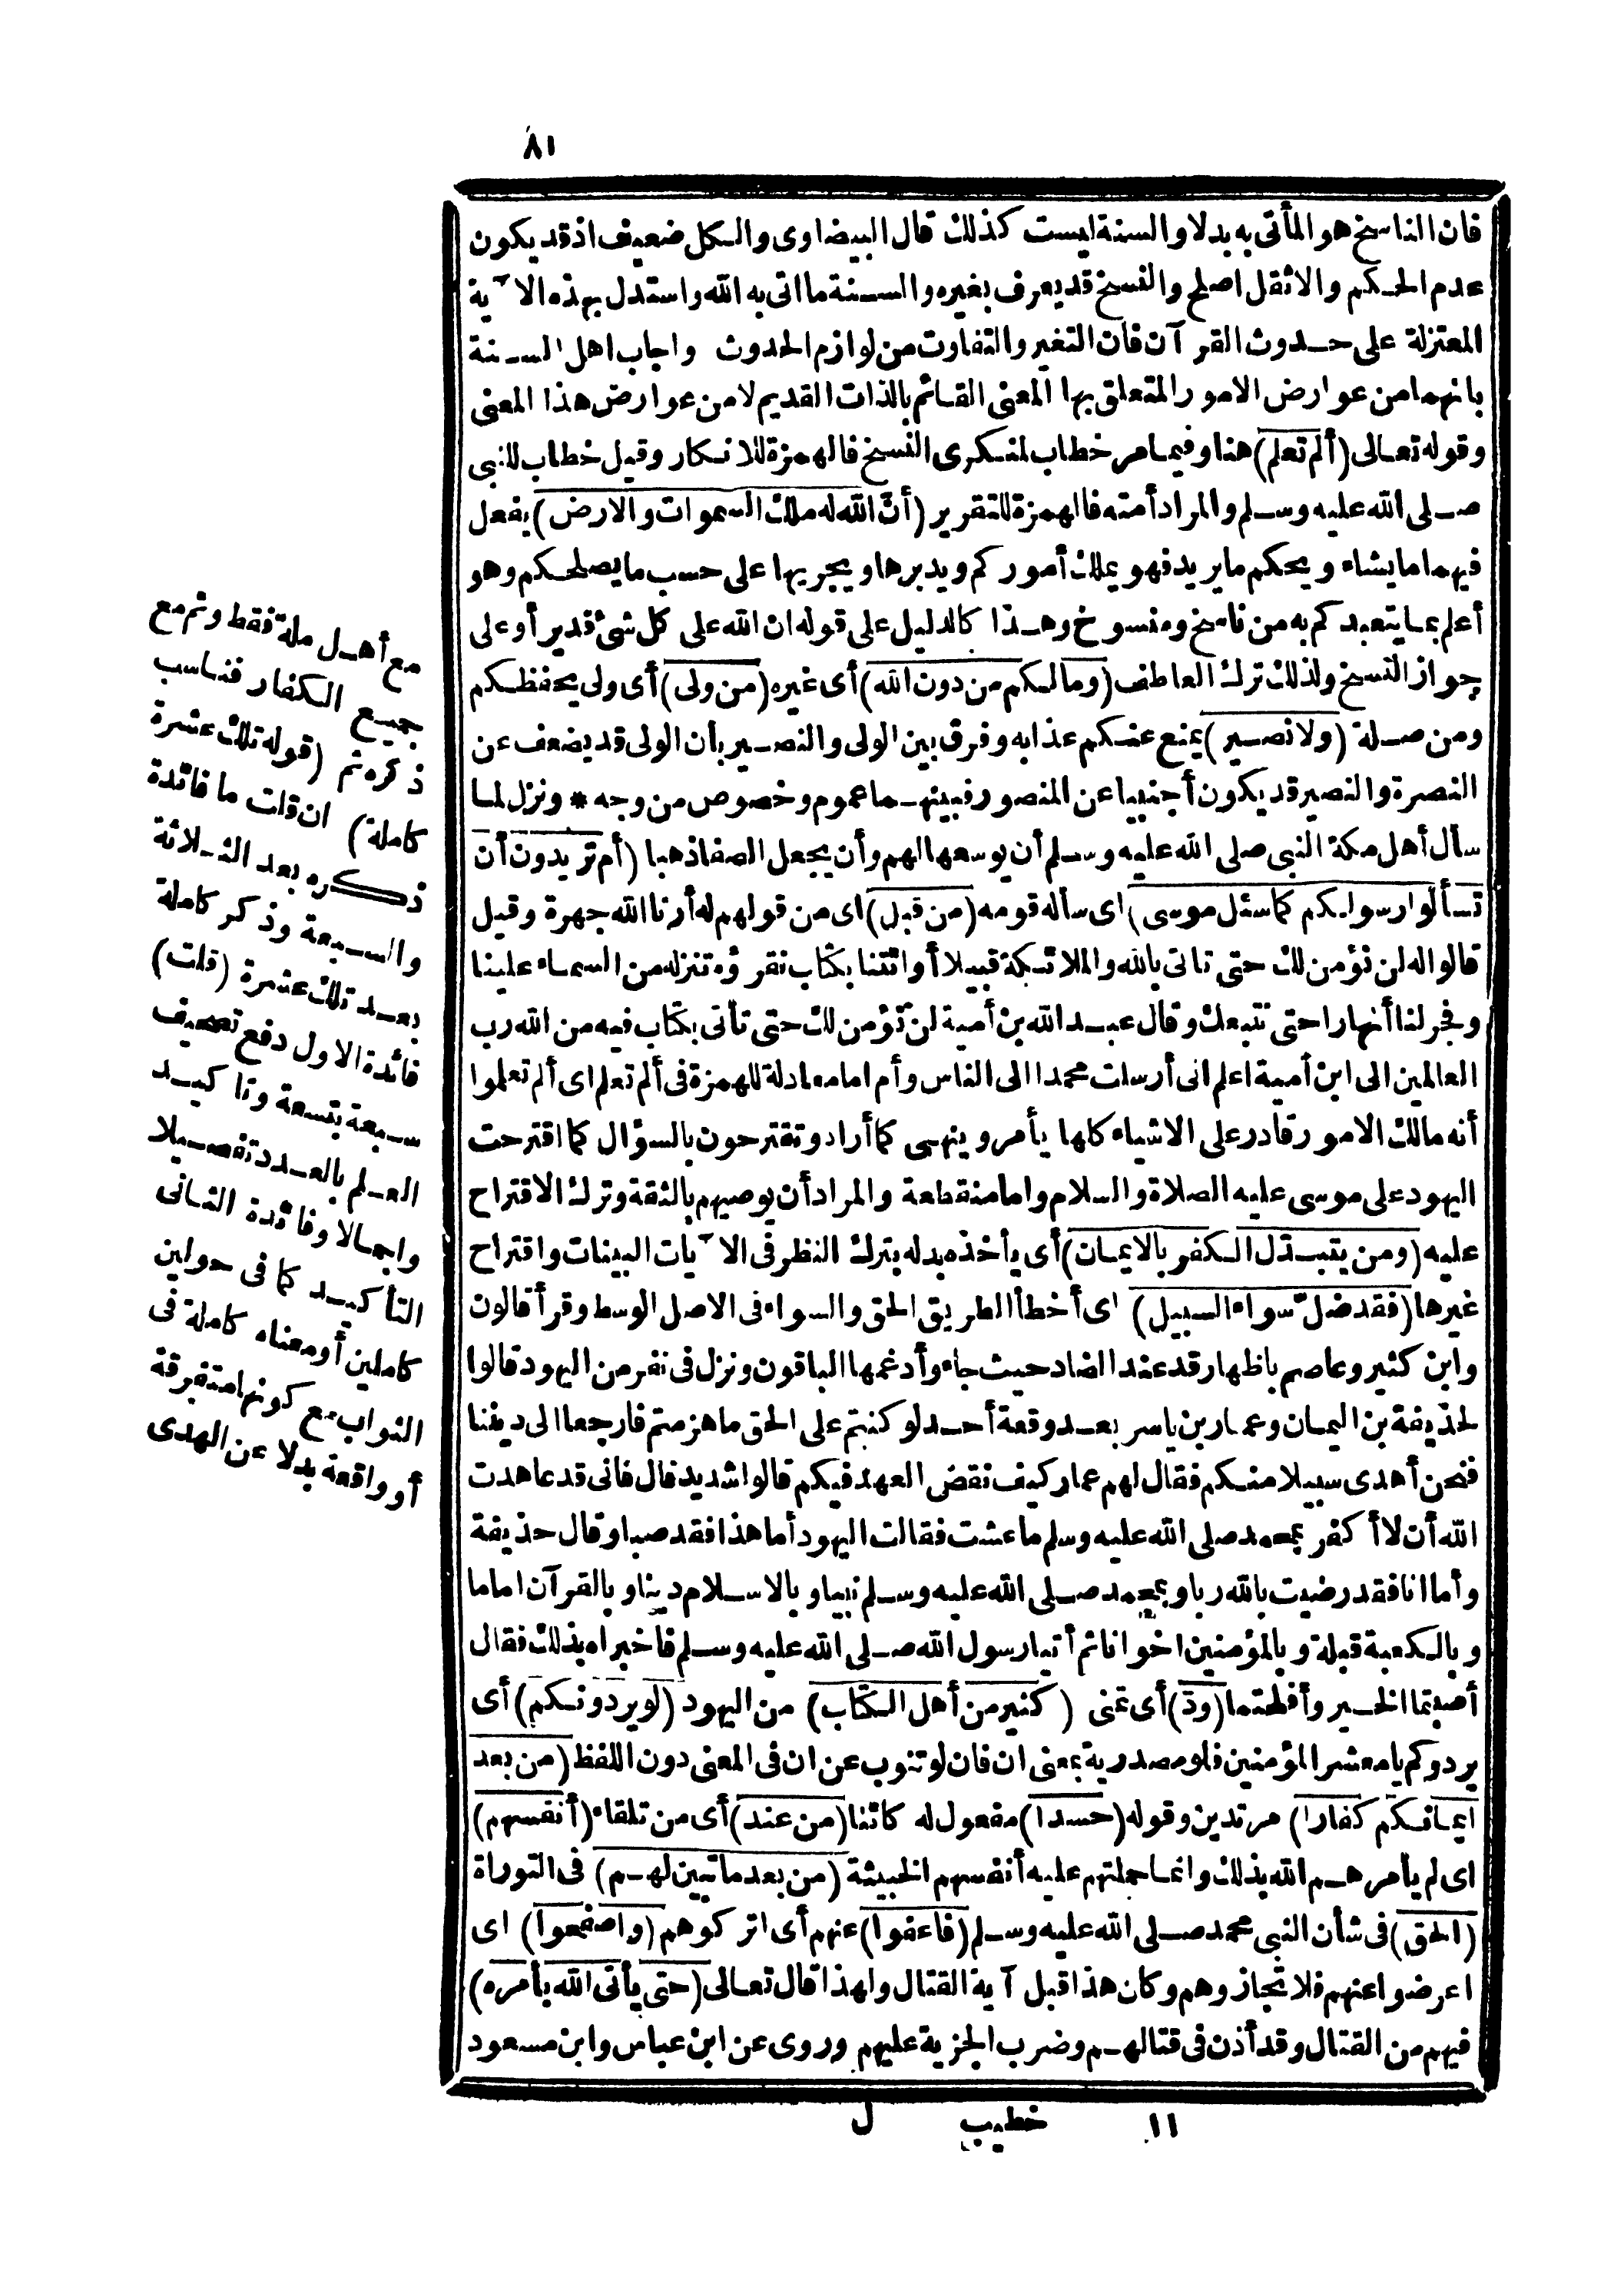 ٨١
فان الناسخ هو المأتى به بدلا والسنة ليست كذلك قال البيضاوى والكل ضعيف اذ قد يكون
عدم الحكم والاثقل اصلح والنسخ قد يعرف بغيره والسنة ما اتى به الله واستدل بهذه الآية
المعتزلة على حدوث القرآن فان التغير والتفاوت من لوازم الحدوث واجاب اهل السنة
بانهما من عوارض الامور المتعلق بها المعنى القائم بالذات القديم لا من عوارض هذا المعنى
وقوله تعالى (ألم تعلم) هنا وفيما مر خطاب لمنكرى النسخ فالهمزة للانكار وقيل خطاب للنبى
صلى الله عليه وسلم والمراد أمته فالهمزة للتقرير (أنّ الله له ملك السموات والارض) يفعل
فيهما ما يشاء ويحكم ما يريد فهو يملك أموركم ويدبرها ويجريها على حسب ما يصلحكم وهو
أعلم بما يتعبدكم به من ناسخ ومنسوخ وهذا كالدليل على قوله ان الله على كل شئ قدير أو على
جواز النسخ ولذلك ترك العاطف (ومالكم من دون الله) أى غيره (من ولى) أى ولى يحفظكم
ومن صلة (ولا نصير) يمنع عنكم عذابه وفرق بين الولى والنصير بأن الولى قد يضعف عن
النصرة والنصير قد يكون أجنبيا عن المنصور فبينهما عموم وخصوص من وجه * ونزل لما
سأل أهل مكة النبى صلى الله عليه وسلم أن يوسعها لهم وأن يجعل الصفا ذهبا (أم تريدون أن
تسألوا رسولكم كما سئل موسى) اى سأله قومه (من قبل) اى من قولهم له أرنا الله جهرة وقيل
قالوا له لن نؤمن لك حتى تاتى بالله والملائكة قبيلا أو ائتنا بكتاب نقرؤه تنزله من السماء علينا
وفجر لنا أنهارا حتى نتبعك وقال عبد الله بن أمية لن نؤمن لك حتى تأتى بكتاب فيه من الله رب
العالمين الى ابن أمية اعلم انى أرسلت محمدا الى الناس وأم اما معادلة للهمزة فى ألم تعلم اى ألم تعلموا
أنه مالك الامور قادر على الاشياء كلها يأمر وينهى كما أراد وتقترحون بالسؤال كما اقترحت
اليهود على موسى عليه الصلاة والسلام واما منقطعة والمراد أن يوصيهم بالثقة وترك الاقتراح
عليه (ومن يتبدّل الكفر بالايمان) أى يأخذه بدله بترك النظر فى الآيات البينات واقتراح
غيرها (فقد ضلّ سواء السبيل) اى أخطأ الطريق الحق والسواء فى الاصل الوسط وقرأ قالون
وابن كثير وعاصم باظهار قد عند الضاد حيث جاء وأدغمها الباقون ونزل فى نفر من اليهود قالوا
لحذيفة بن اليمان وعمار بن ياسر بعد وقعة أحد لو كنتم على الحق ما هزمتم فارجعا الى ديننا
فنحن أهدى سبيلا منكم فقال لهم عمار كيف نقض العهد فيكم قالوا شديد قال فانى قد عاهدت
الله أن لا أكفر بمحمد صلى الله عليه وسلم ما عشت فقالت اليهود أما هذا فقد صبا وقال حذيفة
وأما انا فقد رضيت بالله ربا وبمحمد صلى الله عليه وسلم نبيا وبالاسلام دينا وبالقرآن اماما
وبالكعبة قبلة وبالمؤمنين اخوانا ثم أتيا رسول الله صلى الله عليه وسلم فاخبراه بذلك فقال
أصبتما الخير وأفلحتما (ودّ) أى تمنى (كثير من أهل الكتاب) من اليهود (لو يردونكم) أى
يردوكم يا معشر المؤمنين فلو مصدرية بمعنى ان فان لو تنوب عن ان فى المعنى دون اللفظ (من بعد
ايمانكم كفارا) مرتدين وقوله (حسدا) مفعول له كائنا (من عند) أى من تلقاء (أنفسهم)
اى لم يأمرهم الله بذلك وانما حملتهم عليه أنفسهم الخبيثة (من بعد ما تبين لهم) فى التوراة
(الحق) فى شأن النبى محمد صلى الله عليه وسلم (فاعفوا) عنهم أى اتركوهم (واصفحوا) اى
اعرضوا عنهم فلا تجازوهم وكان هذا قبل آية القتال ولهذا قال تعالى (حتى يأتى الله بأمره)
فيهم من القتال وقد أذن فى قتالهم وضرب الجزية عليهم وروى عن ابن عباس وابن مسعود
١١ خطيب ل
مع أهل ملة فقط وثم مع
جميع الكفار فناسب
ذكره ثم (قوله تلك عشرة
كاملة) ان قلت ما فائدة
ذكره بعد الثلاثة
والسبعة وذكر كاملة
بعد تلك عشرة (قلت)
فائدة الاول دفع تصحيف
سبعة بتسعة وتاكيد
العلم بالعدد تفصيلا
واجمالا وفائدة الثانى
التأكيد كما فى حولين
كاملين أو معناه كاملة فى
الثواب مع كونها متفرقة
أو واقعة بدلا عن الهدى